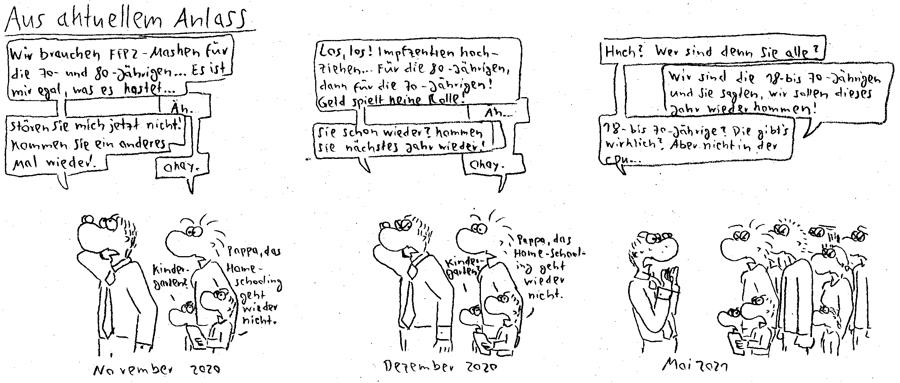 Aus aktuellem Anlass
Wir brauchen FFP2-Masken für
die 70- und 80-Jährigen... Es ist
mir egal, was es kostet...
Äh.
Stören Sie mich jetzt nicht!
Kommen Sie ein anderes
Mal wieder!
Okay.
Kinder-
garten?
Pappa, das
Home-
schooling
geht
wieder
nicht.
November 2020
Los, los! Impfzentren hoch-
ziehen... Für die 80-Jährigen,
dann für die 70-Jährigen!
Geld spielt keine Rolle!
Äh...
Sie schon wieder? Kommen
sie nächstes Jahr wieder!
Okay.
Kinder-
garten?
Pappa, das
Home-school-
ing geht
wieder
nicht.
Dezember 2020
Huch? Wer sind denn Sie alle?
Wir sind die 18-bis 70-Jährigen
und Sie sagten, wir sollen dieses
Jahr wieder kommen!
18- bis 70-Jährige? Die gibt's
wirklich? Aber nicht in der
CDU...
Mai 2021